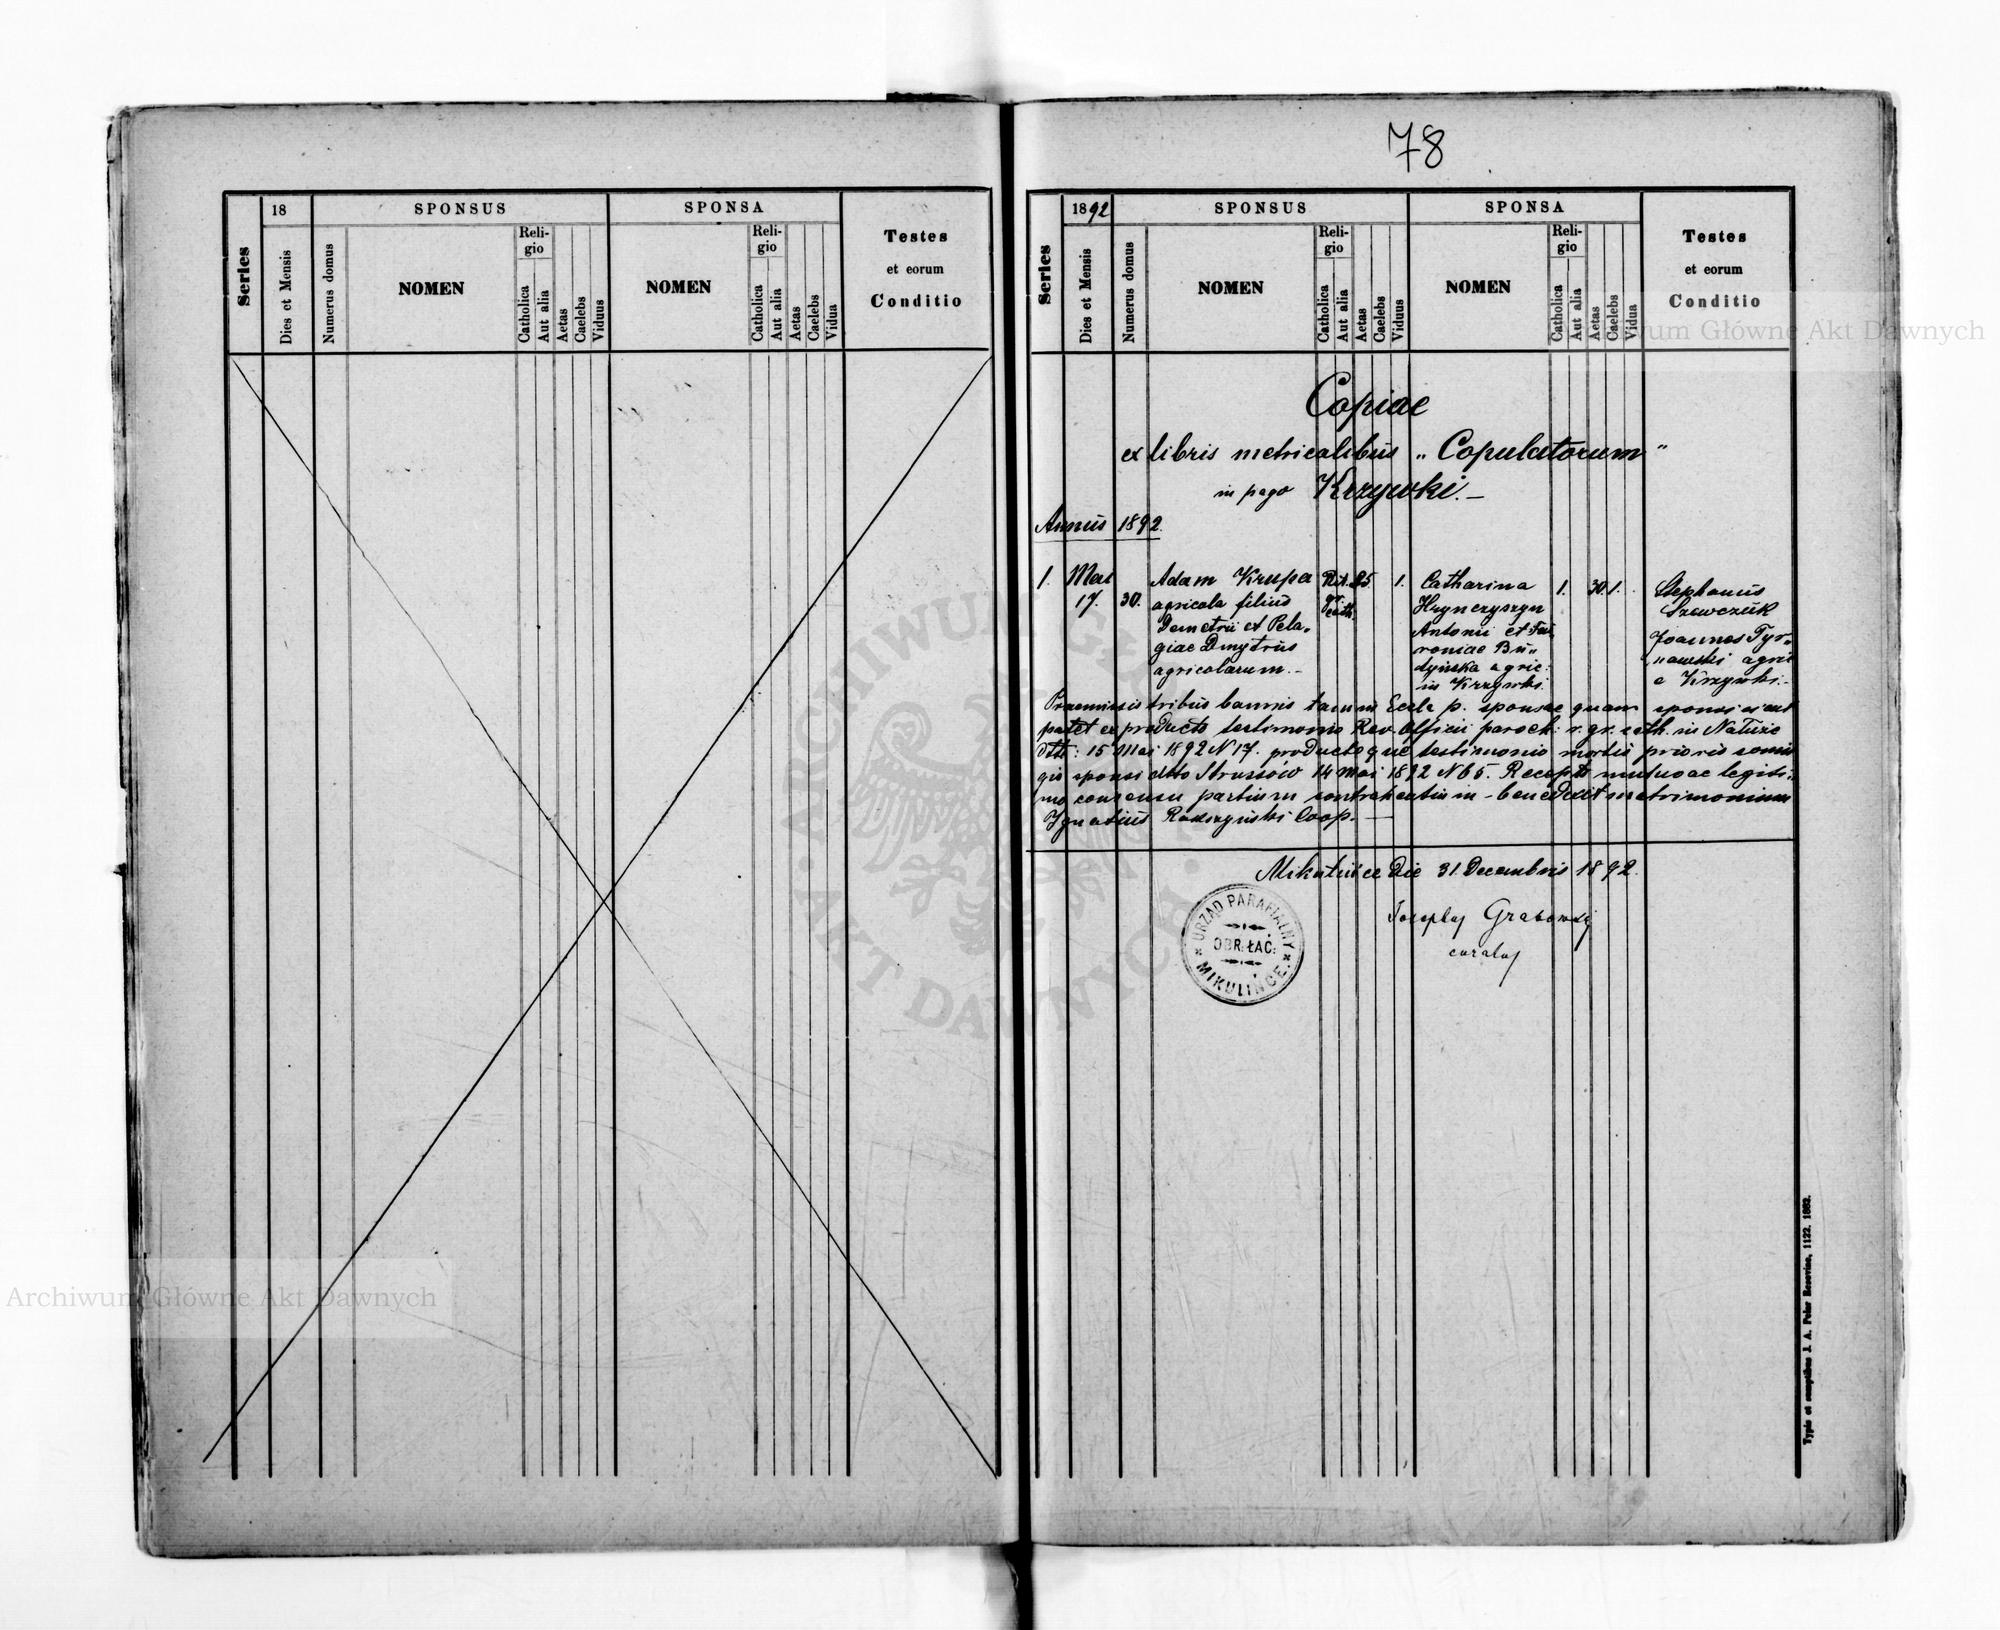 78
Series
18
Dies et Mensis
Numerus domus
SPONSUS
NOMEN
Reli-
gio
Catholica
Aut alia
Aetas
Caelebs
Viduus
SPONSA
NOMEN
Reli-
gio
Catholica
Aut alia
Aetas
Caelebs
Vidua
Testes
et eorum
Conditio
Series
1892
Dies et Mensis
Numerus domus
SPONSUS
NOMEN
Reli-
gio
Catholica
Aut alia
Aetas
Caelebs
Viduus
SPONSA
NOMEN
Reli-
gio
Catholica
Aut alia
Aetas
Caelebs
Vidua
Testes
et eorum
Conditio
Copiae
ex libris metricalibus „Copulatorum"
in pago Krzywki.
Annus 1892.
1.
Mai
17.
30.
Adam Krupa
agricola filius
Demetrii et Pela„
giae Dmytrus
agricolarum.
Rit.
gr.
cath.
1.
Catharina
Hrynczyszyn
Antonii et
roniae Bu„
dyńska agric:
in Krzywki.
1.
30
1.
Stephanus
Szewczuk
Joannes Tyr„
nawski agri
e Krzywki.
Praemissis tribus bannis tam in Eccla p. sponsae quam sponsi
patet ex producto testimonio Rev. Officii paroch: r. gr. cath. in
15 Mai 1892 N 17. productoque testimonio mortis prioris conju
gis sponsi dtto Strussów 14 Mai 1892 N 65. Recepto mutuo ac legiti„
mo consensu partium contrahentium benedixit matrimonium
Ignatius Coop.
Mikulińce Die 31. Decembris 1892.
Josephus Grabowski
curatus
URZĄD PARAFIALNY
OBR. ŁAĆ.
MIKULIŃCE.
Typis et sumptibus J. A. Pelar Resoviae, 1122. 1882.
Archiwum Główne Akt Dawnych
Archiwum Główne Akt Dawnych
ARCHIWUM GŁÓWNE AKT DAWNYCH